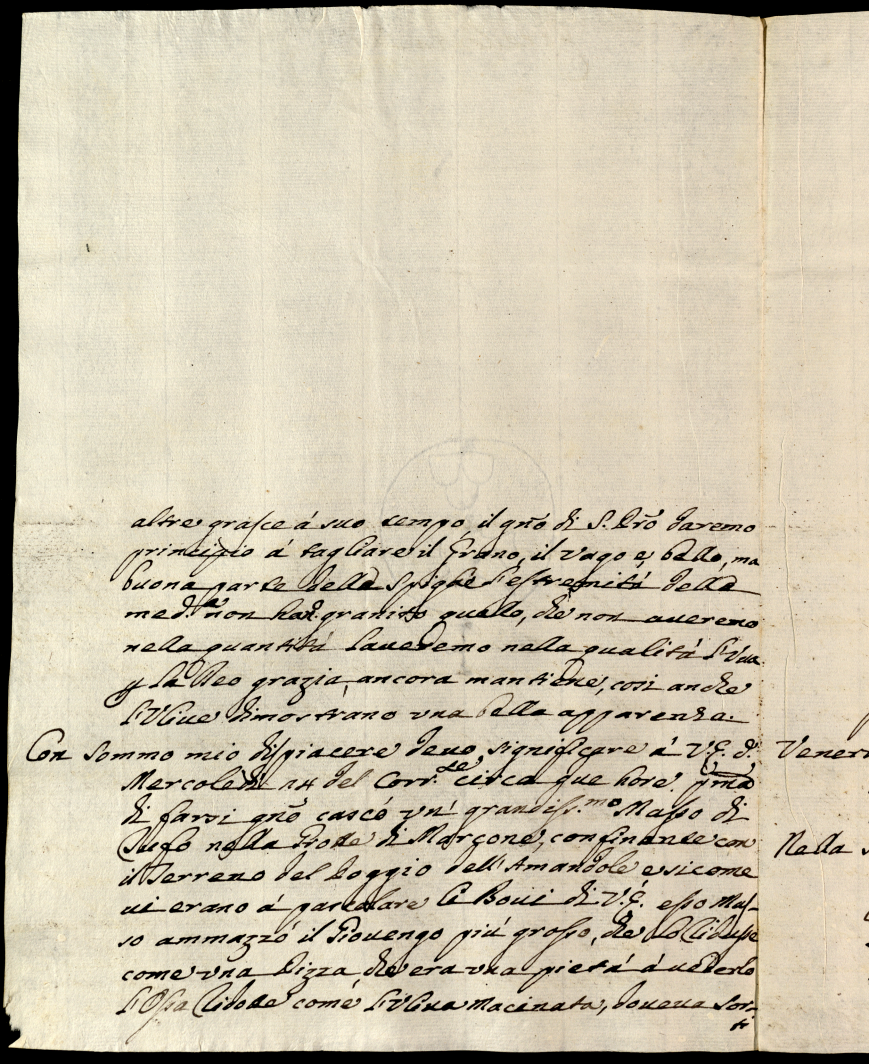 altre grasce á suo tempo il gño di S. Prõ daremo
principio á tagliare il grano, il vago é, bello, ma
buona parte della Spighe l'estremitá della
med.ª non han granito quello, che non averemo
nella quantitá l'averemo nella qualitá l'Vua
la Deo grazia, ancora mantiene, cosi anche
l'Vliue dimostrano vna bella apparenza.
Con sommo mio dispiacere deuo significare á V.E. d.
Mercoledi 14 del Corr.te circa que hore pma
di farsi gño cascó vn' grandiss.mo Masso di
Tufo nella Grotte di Marcone, confinante con
il Terreno del Poggio dell'Amandole e sicome
ui erano á pascolare li Boui di V.E. esso Mas-
so ammazzó il Giouengo piú grosso, che lo Ridusse
come vna Pizza che era vna pietá á uederlo
l'Ossa Ridotte comé l'Vliua macinata, doueua sor-
ti
Venerd
Nella s